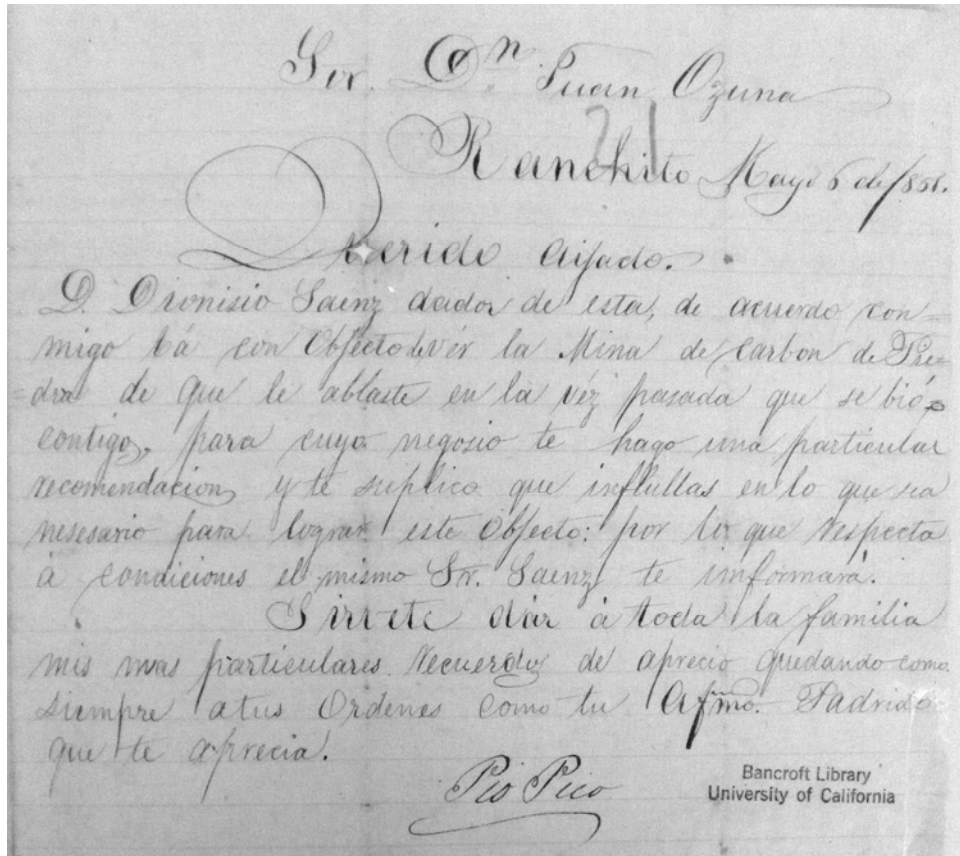 Sor. Dn. Juan Ozuna
21
Ranchito Mayo 6 de 1851.
Querido Aijado.
D. Dionisio Saenz dador de esta, de acuerdo con=
migo bá con Objecto de vér la Mina de carbon de Pie=
=dra de que le ablaste en la véz pasada que se bió
contigo, para cuyo negosio te hago una particular
recomendacion y te suplico que influllas en lo que sea
nesesario para lograr este Objecto: por lo que respecta
á condiciones el mismo Sr. Saenz te informará.
Sirvete dár á toda la familia
mis mas particulares recuerdos de aprecio quedando como
siempre atus Ordenes como tu Afmo. Padrido
que te aprecia.
Pio Pico
Bancroft Library
University of California